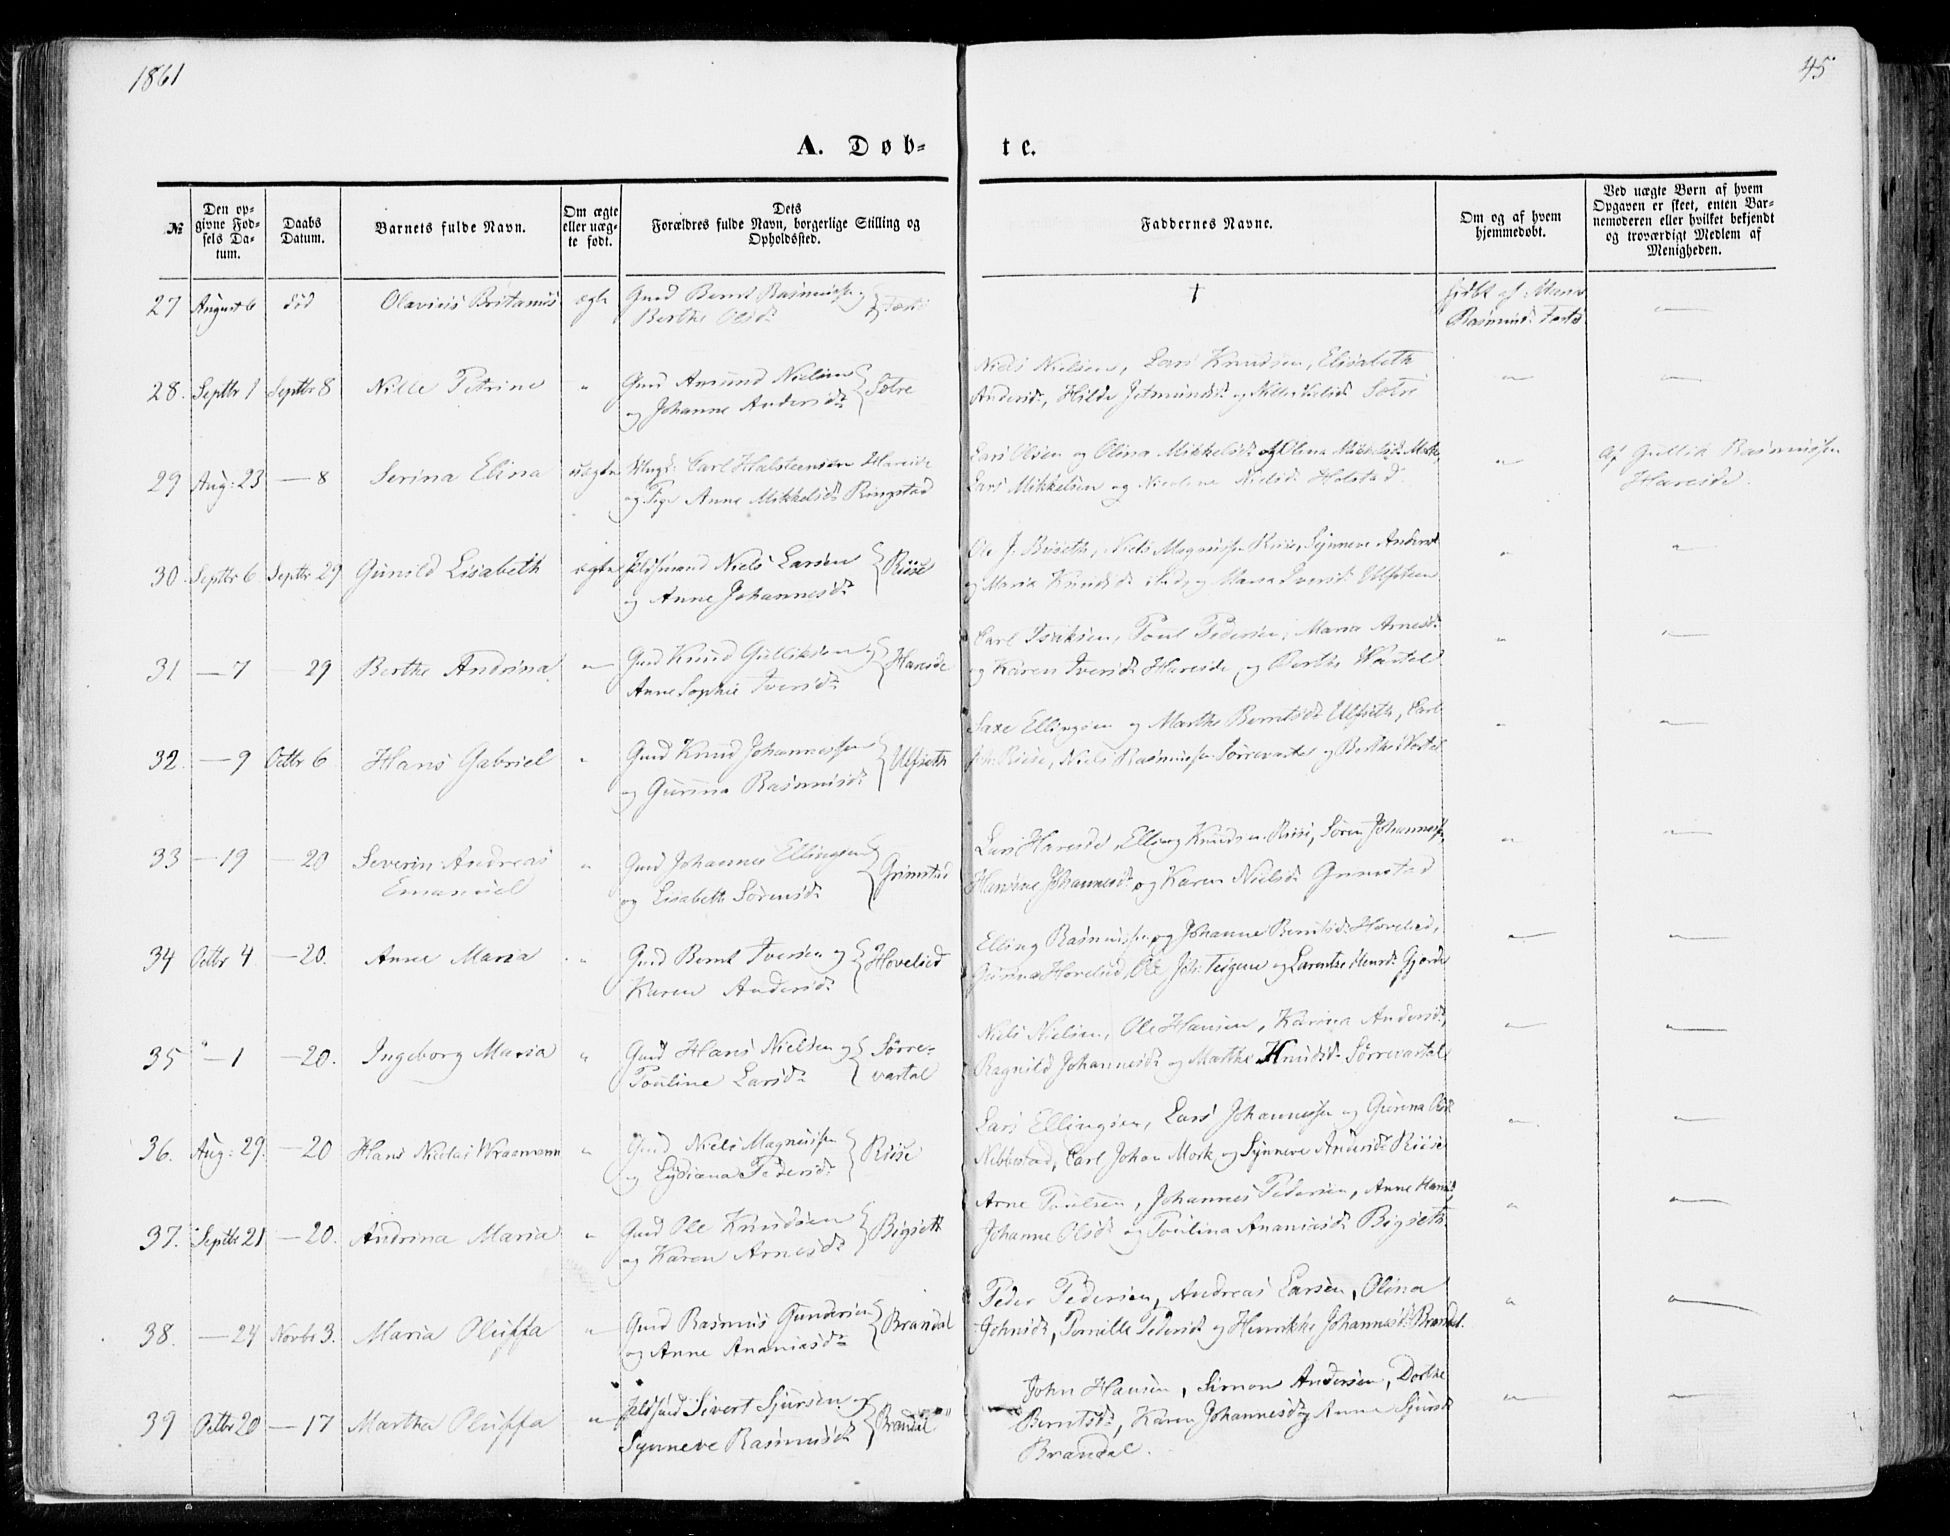 1861
45
A. Døb-
te.
№
Den op-
givne Fød-
sels Da-
tum.
Daabs
Datum.
Barnets fulde Navn.
Om ægte
eller uæg-
te født.
Dets
Forældres fulde Navn, borgerlige Stilling og
Opholdssted.
Faddernes Navne.
Om og af hvem
hjemmedøbt.
Ved uægte Børn af hvem
Opgaven er skeet, enten Bar-
nemoderen eller hvilket bekjendt
og troværdigt Medlem af
Menigheden.
27 August 6 død Olavius Britanus ægte Gmd Bernt Rasmussen og
Berthe Olsd.
†
28. Septbr 1 Septbr 8 Nille Petrine " Gmd Amund Nielsen
og Johanne Andersd. Sætre
Niels Nielsen, Lars Knudsen, Elisabeth
Andersd., Hilde Jetmundsd. og Nille Nielsd. Sætre
29 Aug: 23 — 8 Serina Elina uægte Ungk. Carl Halsteensen Hareide
og Pige Anne Mikkelsd. Ringstad
Lars Olsen og Olina Mikkelsd.
Lars Mikkelsen og Nicoline Nielsd. Holstad
Af Gullik Rasmussen
Hareide.
30. Septbr 6 Septbr 29 Gunild Lisabeth ægte Niels Larsen
og Anne Johannesd. Riise
Niels Magnussen Riise, Synneve Andersd.
og Maria Knudsd. og Maria Iversd. Ulfsteen
31 — 7 — 29 Berthe Andrina — Gmd Knud Gulliksen og
Anne Sophie Iversd. Hareide
Poul Pedersen, Maria Arnesd.
og Karen Iversd. Hareide og
32. — 9 Octbr 6 Hans Gabriel " Gmd Knud Johannessen
og Gurina Rasmusd. Ulfseth
Saxe Ellingsen og Marthe Berntsd. Ulfseth, Carl
Joh. Riise, Niels Rasmussen Sørrevartal og Berthe
33 — 19 — 20 Severin Andreas
Emanuel " Gmd Johannes Ellingsen
og Lisabeth Sørensd. Grimstad
Lars Hareide, Elling Knudsen Riise, Søren Johannessen,
Hansine Johannesd. og Karen Nielsd. Grimstad
34 Octbr 4 — 20. Anne Maria " Gmd Bernt Iversen og
Karen Andersd. Hovelied
Elling Rasmussen og Johanne Berntsd. Hovelied,
Gurina Hovelied, Ole Joh. Teigene og Larentze Gjerde
35 " — 1 — 20. Ingeborg Maria " Gmd Hans Nielsen og
Pouline Larsd. Sørre-
vartal
Niels Nielsen, Ole Hansen, Karina Andersd.,
Ragnild Johannesd. og Marthe Knudsd. Sørrevartal
36. Aug: 29. — 20 Hans Nicolai Wraamann " Gmd Niels Magnussen
og Lydiana Pedersd. Riise
Lars Ellingsen, Lars Johannessen og Gurina Olsd.
Nebbestad, Carl Johan Mork og Synneve Andersd. Riise
37. Septbr 21 — 20. Andrina Maria " Gmd Ole Knudsen
og Karen Arnesd. Bigseth
Arne Poulsen, Johannes Pedersen, Anne
Johanne Olsd. og Poulina Ananiasd. Bigseth
38. — 24 Novbr 3. Maria Oluffa " Gmd Rasmus Gundersen
og Anne Ananiasd. Brandal
Peder Pedersen, Andreas Larsen, Olina
Johnsd., Pernille Pedersd. og Henrikke Johannesd. Brandal.
39 Octbr 20 — 17 Martha Oluffa " Sivert Sjursen og
Synneve Rasmusd. Brandal
John Hansen, Simon Andersen, Dorthe
Berntsd., Karen Johannesd. og Anne Sjursd.
Brandal.